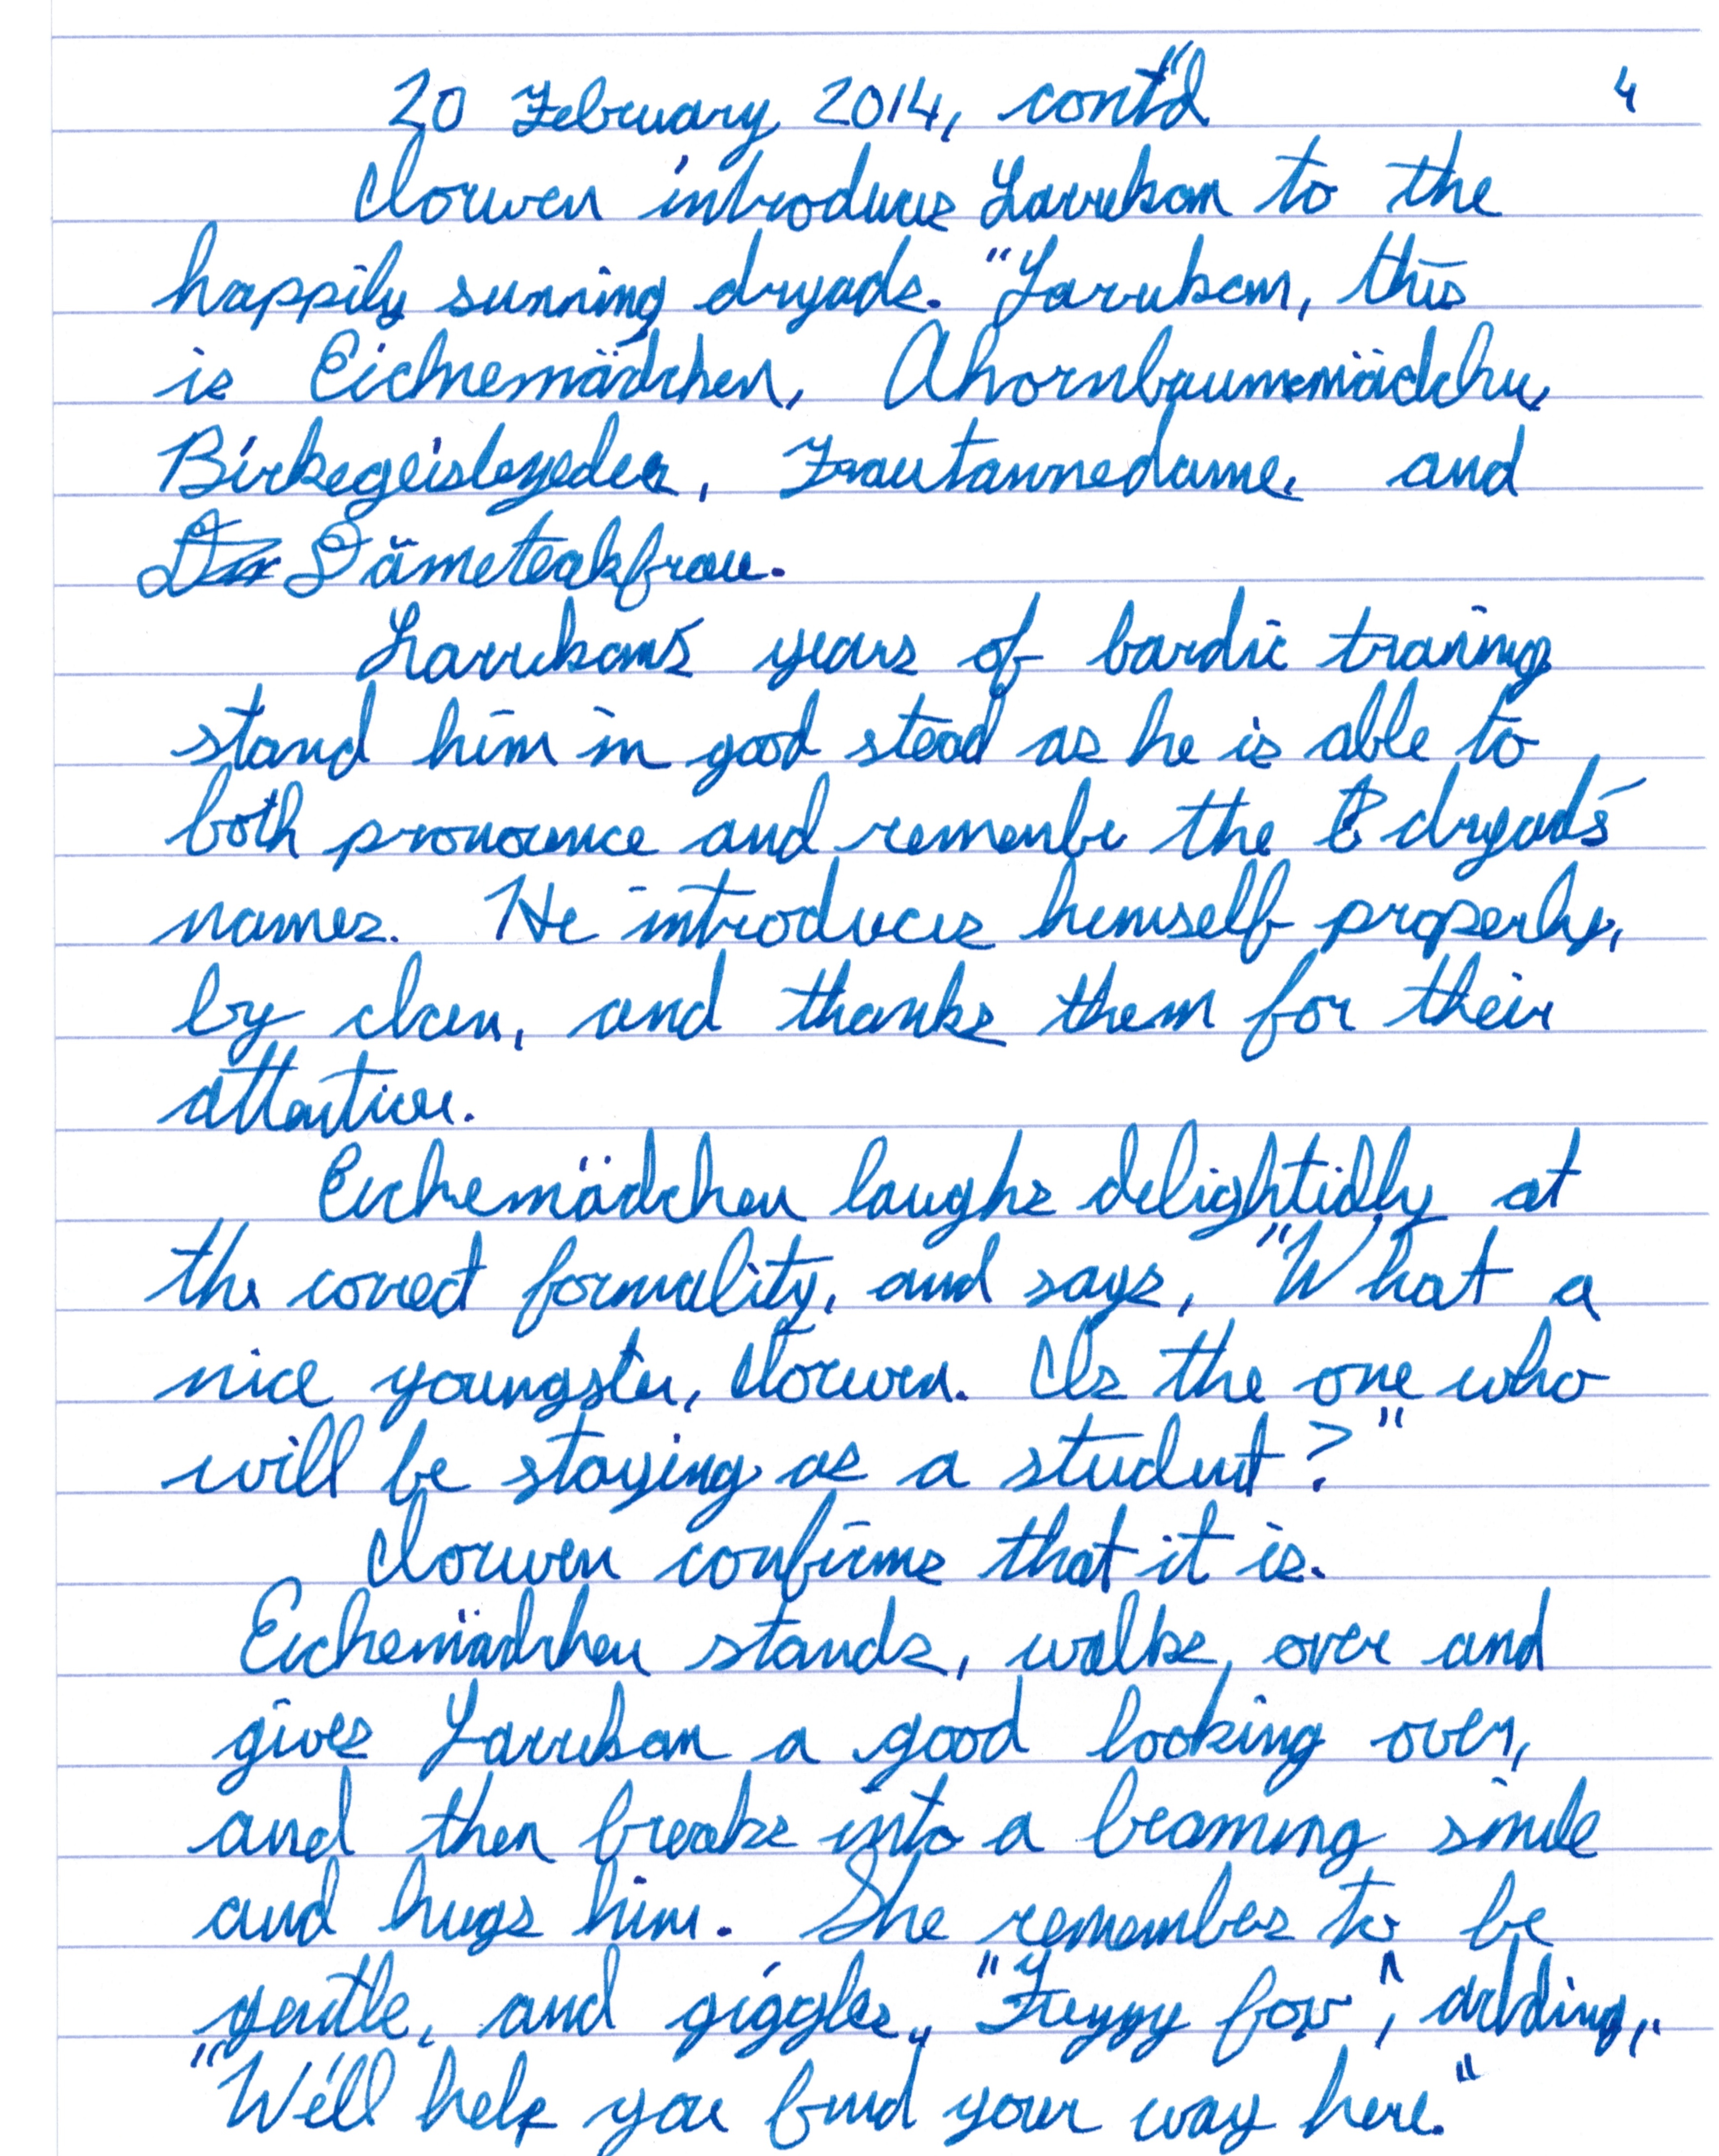 20 February 2014, cont'd 4
Clorwen introduces Larrekam to the
happily sunning dryads. "Larrekam, this
is Eichnemädchen, Ahornbaumsmädchen,
Birkegeist, Frautannedame, and
Dämeteakfrau.
Larrekam's years of bardic training
stand him in good stead as he is able to
both pronounce and remember the dryad's
names. He introduces himself properly,
by clan, and thanks them for their
attention.
Eichemädchen laughs delightidly at
the correct formality, and says, "What a
nice youngster, Clorwen. Is the one who
will be staying as a student?"
Clorwen confirms that it is.
Eichemädchen stands, walks, over and
gives Larrekam a good looking over,
and then breaks into a beaming smile
and hugs him. She remembers to be
gentle, and giggles, "Fuzzy fox", adding,
"We'll help you find your way here."